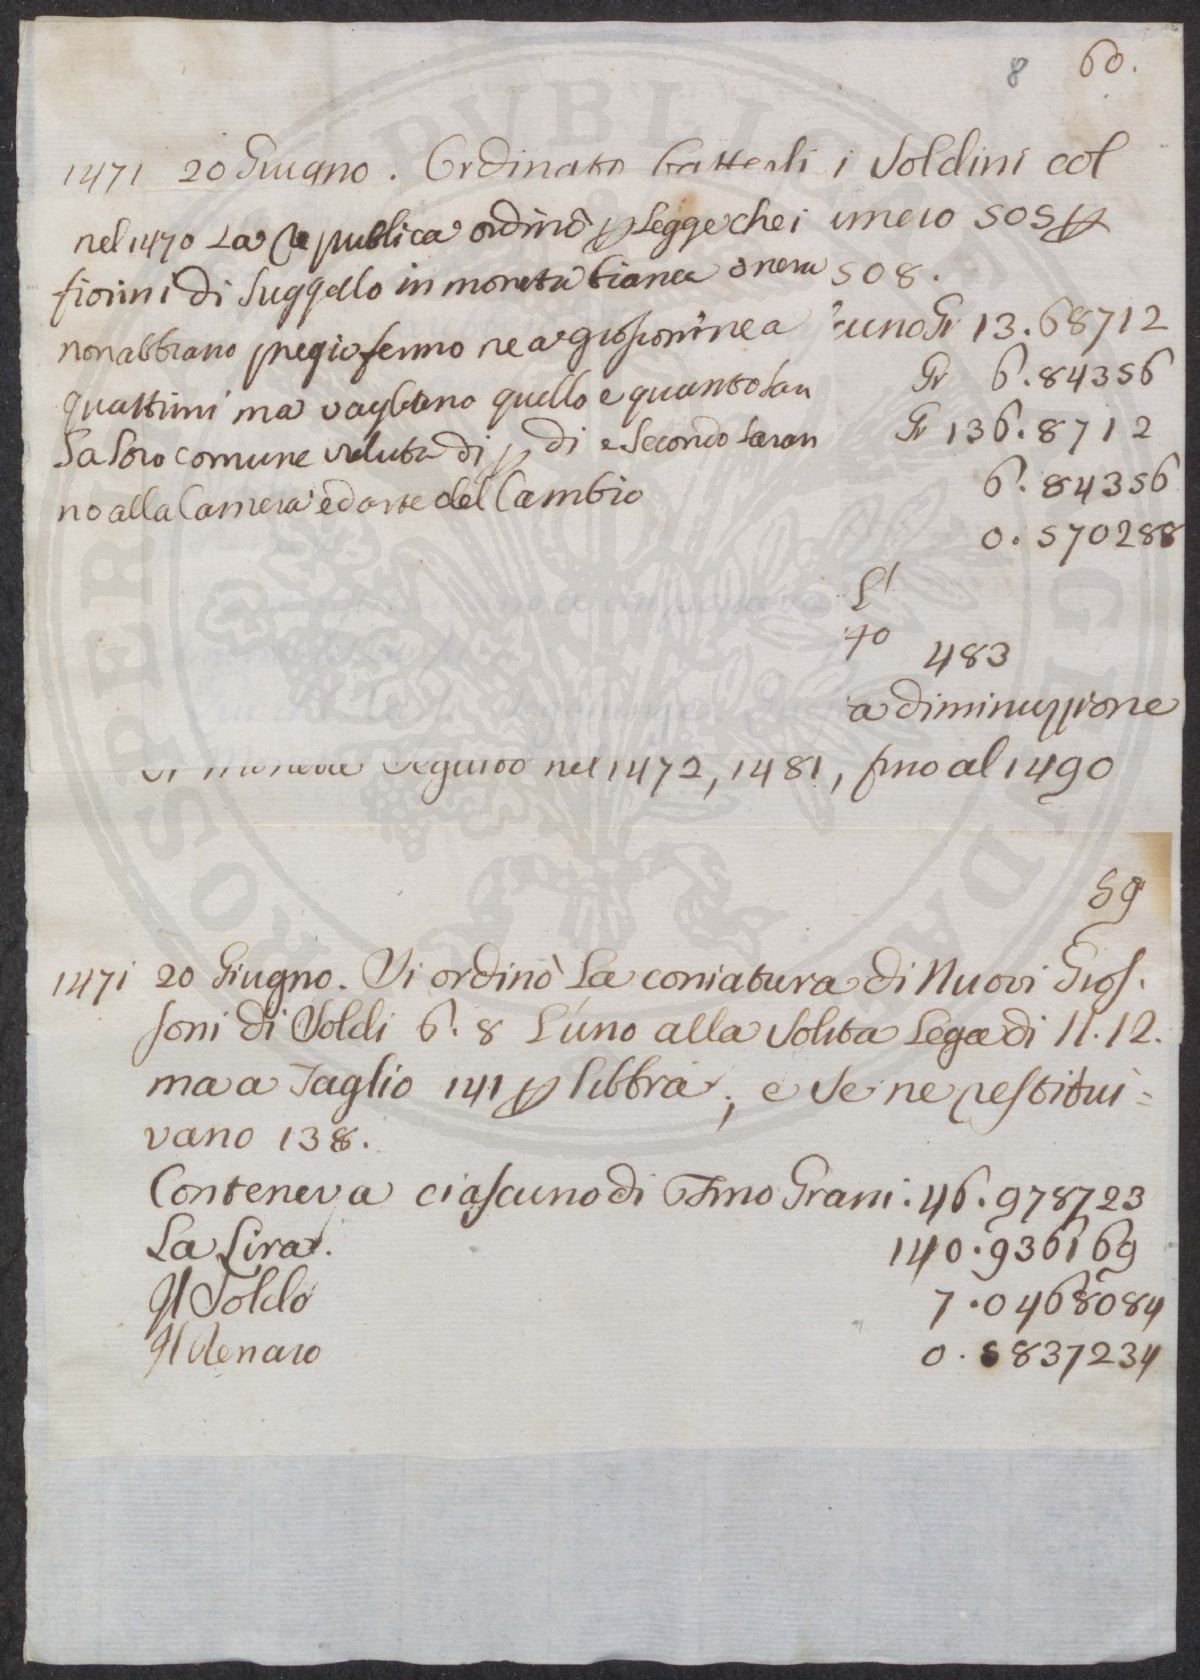 8 60.
1471 20 Giugno. Ordinato battersi i Soldini col
nel 1470 La Republica ordinò p Legge che i
fiorini di Suggello in moneta bianca o nera
non abbiano pregio fermo ne a grossoni ne a
quattrini ma vagliano quello e quanto sarà
la loro comune valuta di p di e secondo saran
no alla Camera ed arte del Cambio
umero 505 p
508.
cuno Gr 13.68712
Gr 6.84356
Gr 136.8712
6.84356
0.570288
L'
40 483
a diminuzzione
di Moneta Seguito nel 1472, 1481, fino al 1490
59
1471 20 Giugno. Si ordinò La coniatura di Nuovi Gros.
soni di Soldi 6.8 L'uno alla Solita Lega di 11.12.
ma a Taglio 141 p libbra, e Se ne restitui=
vano 138.
Conteneva ciascuno di Fino Grani. 46.978723
La Lira. 140.936169
Il Soldo 7.0468084
Il Denaro 0.5837234